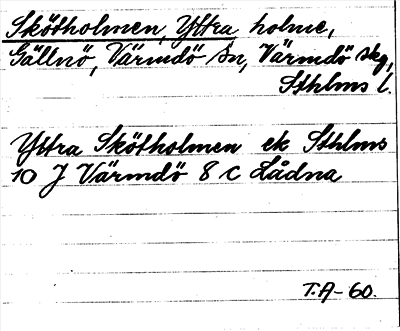 Skötholmen, Yttra holme,
Gällnö, Värmdö sn, Värmdö skg,
Sthlms l.
Yttra Skötholmen ek Sthlms
10 J Värmdö 8 c Lådna
T.A-60.